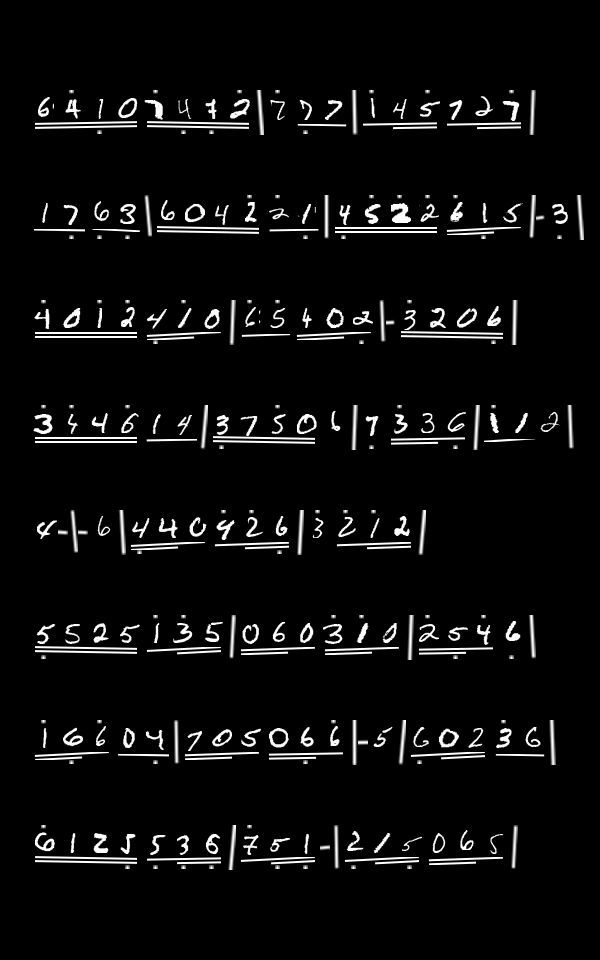 6 4 1 0 7 4 7 2 | 7 7 7 | 1 4 5 7 2 7 |
1 7 6 3 | 6 0 4 2 2 1 | 4 5 2 2 6 1 5 | - 3 |
4 0 1 2 4 1 0 | 6 5 4 0 2 | - 3 2 0 6 |
3 4 4 6 1 4 | 3 7 5 0 6 | 7 3 3 6 | 1 1 2 |
4 - | - 6 | 4 4 0 9 2 6 | 3 2 1 2 |
5 5 2 5 1 3 5 | 0 6 0 3 1 0 | 2 5 4 6 |
1 6 6 0 4 | 7 0 5 0 6 6 | - 5 | 6 0 2 3 6 |
6 1 2 5 5 3 6 | 7 5 1 - | 2 1 5 0 6 5 |